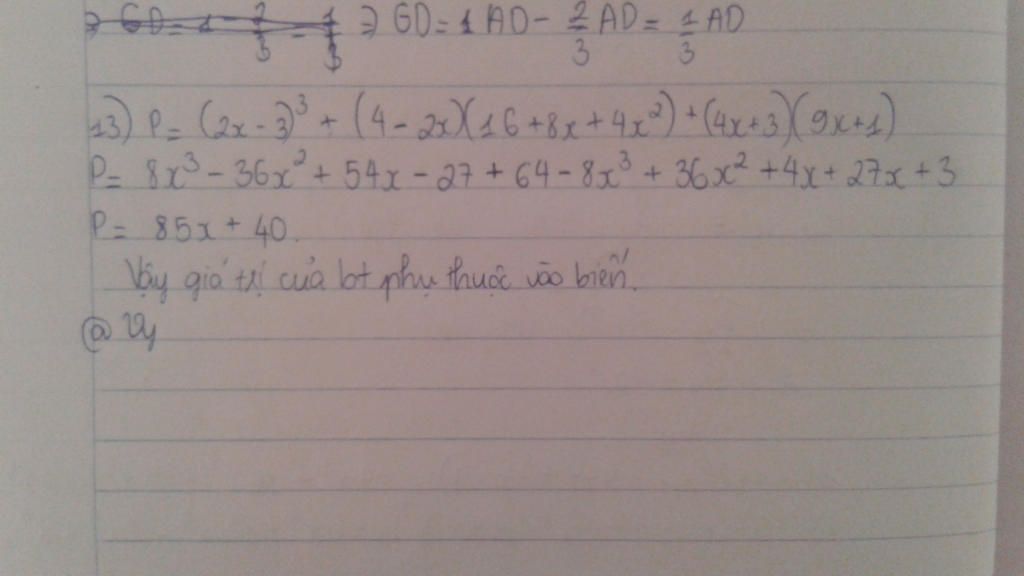 ⇒ GD = 1 - 2/3 = 1/3 ⇒ GD = 1 AD - 2/3 AD = 1/3 AD
13) P = (2x - 3)³ + (4 - 2x)(16 + 8x + 4x²) + (4x + 3)(9x + 1)
P = 8x³ - 36x² + 54x - 27 + 64 - 8x³ + 36x² + 4x + 27x + 3
P = 85x + 40.
Vậy giá trị của bt phụ thuộc vào biến.
@ Vy